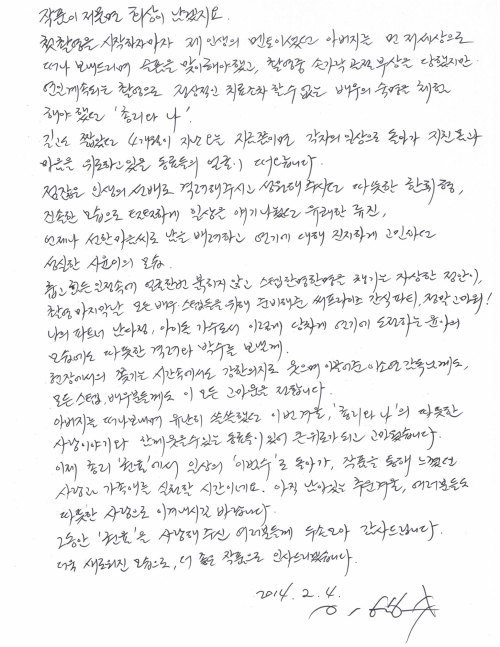 작품이 저물면 회상이 남겠지요.
첫 촬영을 시작하자마자 제 인생의 멘토이셨던 아버지를 먼저 세상으로
떠나 보내드리며 슬픔을 맞이해야했고, 촬영중 손가락 관절부상을 당했지만
연일 계속되는 촬영으로 정상적인 치료조차 할 수 없는 배우의 숙명을 체험
해야 했던 '총리와 나'.
길고도 짧았던 4개월이 지난 오늘 지금쯤이면 각자의 일상으로 돌아가 지친 몸과
마음을 위로하고 있을 동료들의 얼굴이 떠오릅니다.
점잖은 인생의 선배로 격려해주시고 성원해주시던 따뜻한 한희 형,
진솔한 모습으로 담담하게 일상을 얘기 나눴던 유쾌한 류진,
언제나 선한 마음씨로 남을 배려하고 연기에 대해 진지하게 고민하던
성실한 시윤이의 모습.
춥고 힘든 일정속에 얼굴한번 붉히지 않고 스텝 한명한명을 챙기는 자상한 정안이,
촬영 마지막날 모든 배우, 스텝들을 위해 준비해준 써프라이즈 간식파티, 정말 고마워!
나의 파트너 남다정, 아이돌 가수로서 이렇게 당차게 연기에 도전하는 윤아의
모습에도 따뜻한 격려와 박수를 보낼께.
현장에서의 쫓기는 시간속에서도 강한의지로 웃으며 이끌어준 이소연 감독님께도,
모든 스텝, 배우분들께도 이 모든 고마움을 전합니다.
아버지를 떠나보내며 유난히 쓸쓸했던 이번 겨울, '총리와 나'의 따뜻한
사랑이야기와 함께 웃을 수 있는 동료들이 있어 큰 위로가 되고 고마웠습니다.
이제 총리 '권율'에서 일상의 '이범수'로 돌아가, 작품을 통해 느꼈던
사랑과 가족애를 실천할 시간이네요. 아직 남아있는 추운겨울, 여러분들도
따뜻한 사랑으로 이겨내시길 바랍니다.
그동안 '권율'을 사랑해주신 여러분들께 두손모아 감사드립니다.
더욱 새로워진 모습으로, 더 좋은 작품으로 인사드리겠습니다.
2014. 2. 4.